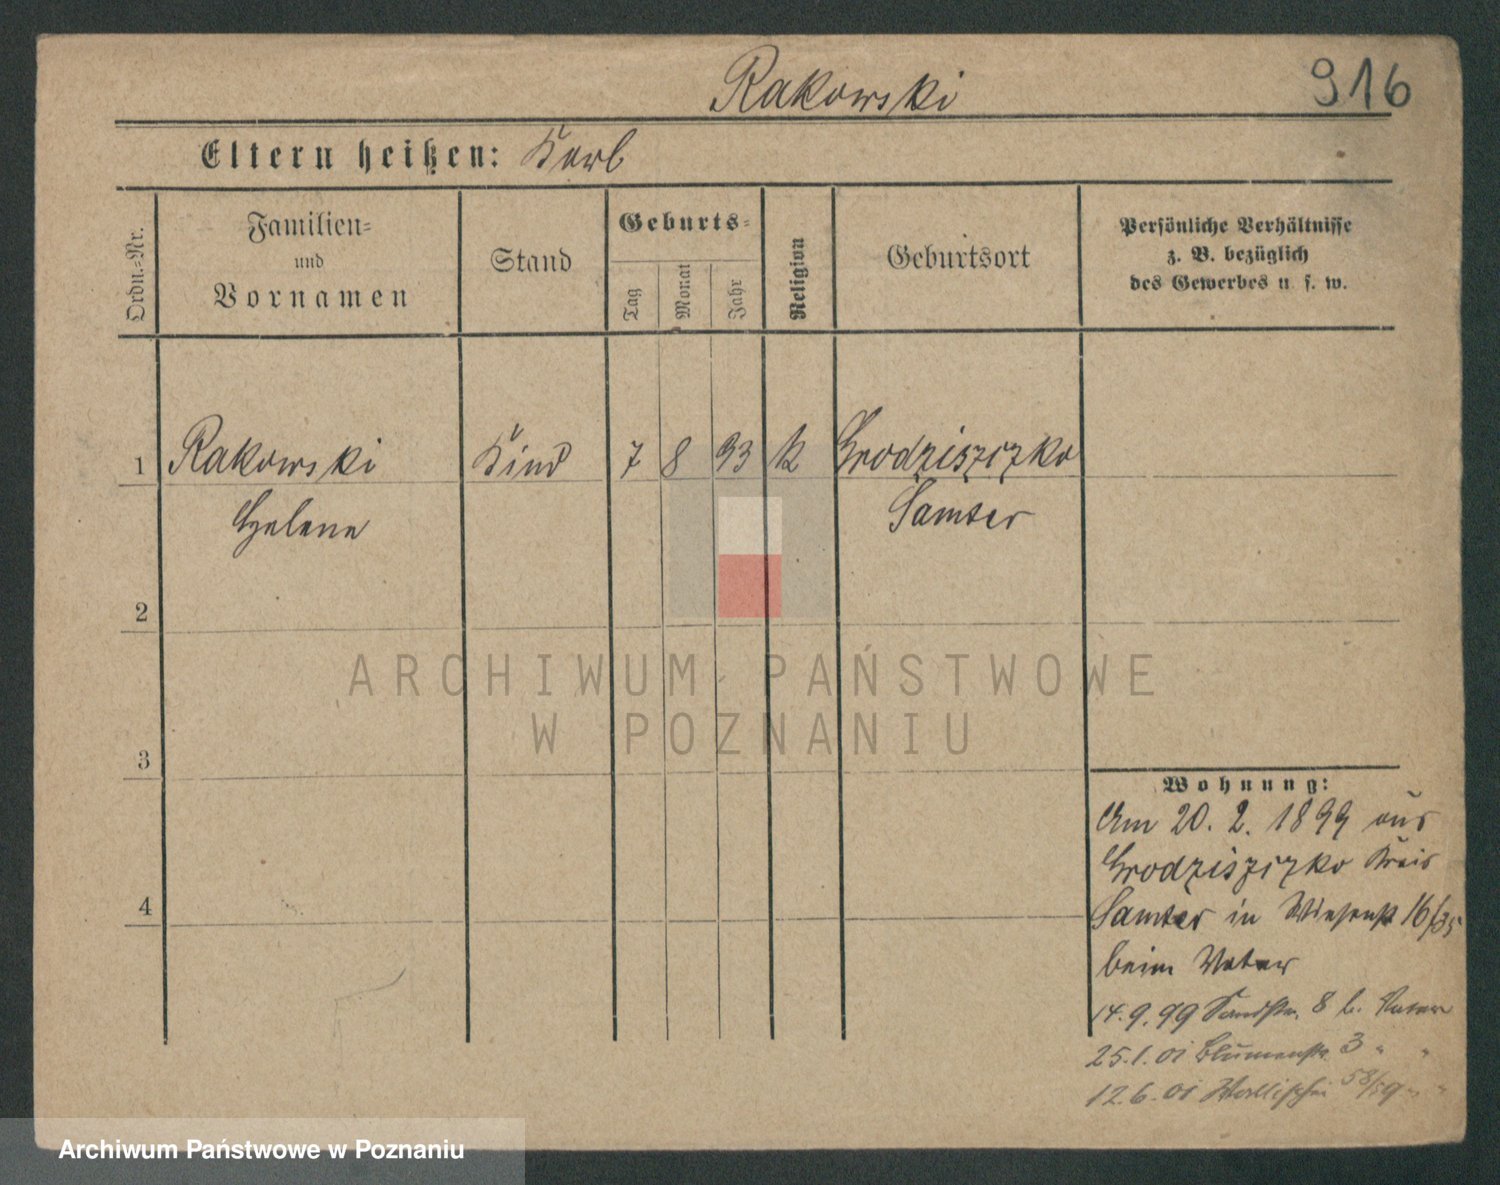 Rakowski
916
Eltern heißen: Korb
Ordn.-Nr.
Familien-
und
Vornamen
Stand
Geburts-
Tag
Monat
Jahr
Religion
Geburtsort
Persönliche Verhältnisse
z. B. bezüglich
des Gewerbes u. s. w.
1 Rakowski Kind 7 8 93 k Grodziszczko
Helene Samter
2
3
4
Wohnung:
Am 20. 2. 1899 aus
Grodziszczko Kreis
Samter in Wiesenstr 16/35
beim Vater
14.9.99 Sandstr. 8 b. Vater
25.1.01 Blumenstr 3 " "
12.6.01 Wallischei 58/59 " "
ARCHIWUM PAŃSTWOWE
W POZNANIU
Archiwum Państwowe w Poznaniu